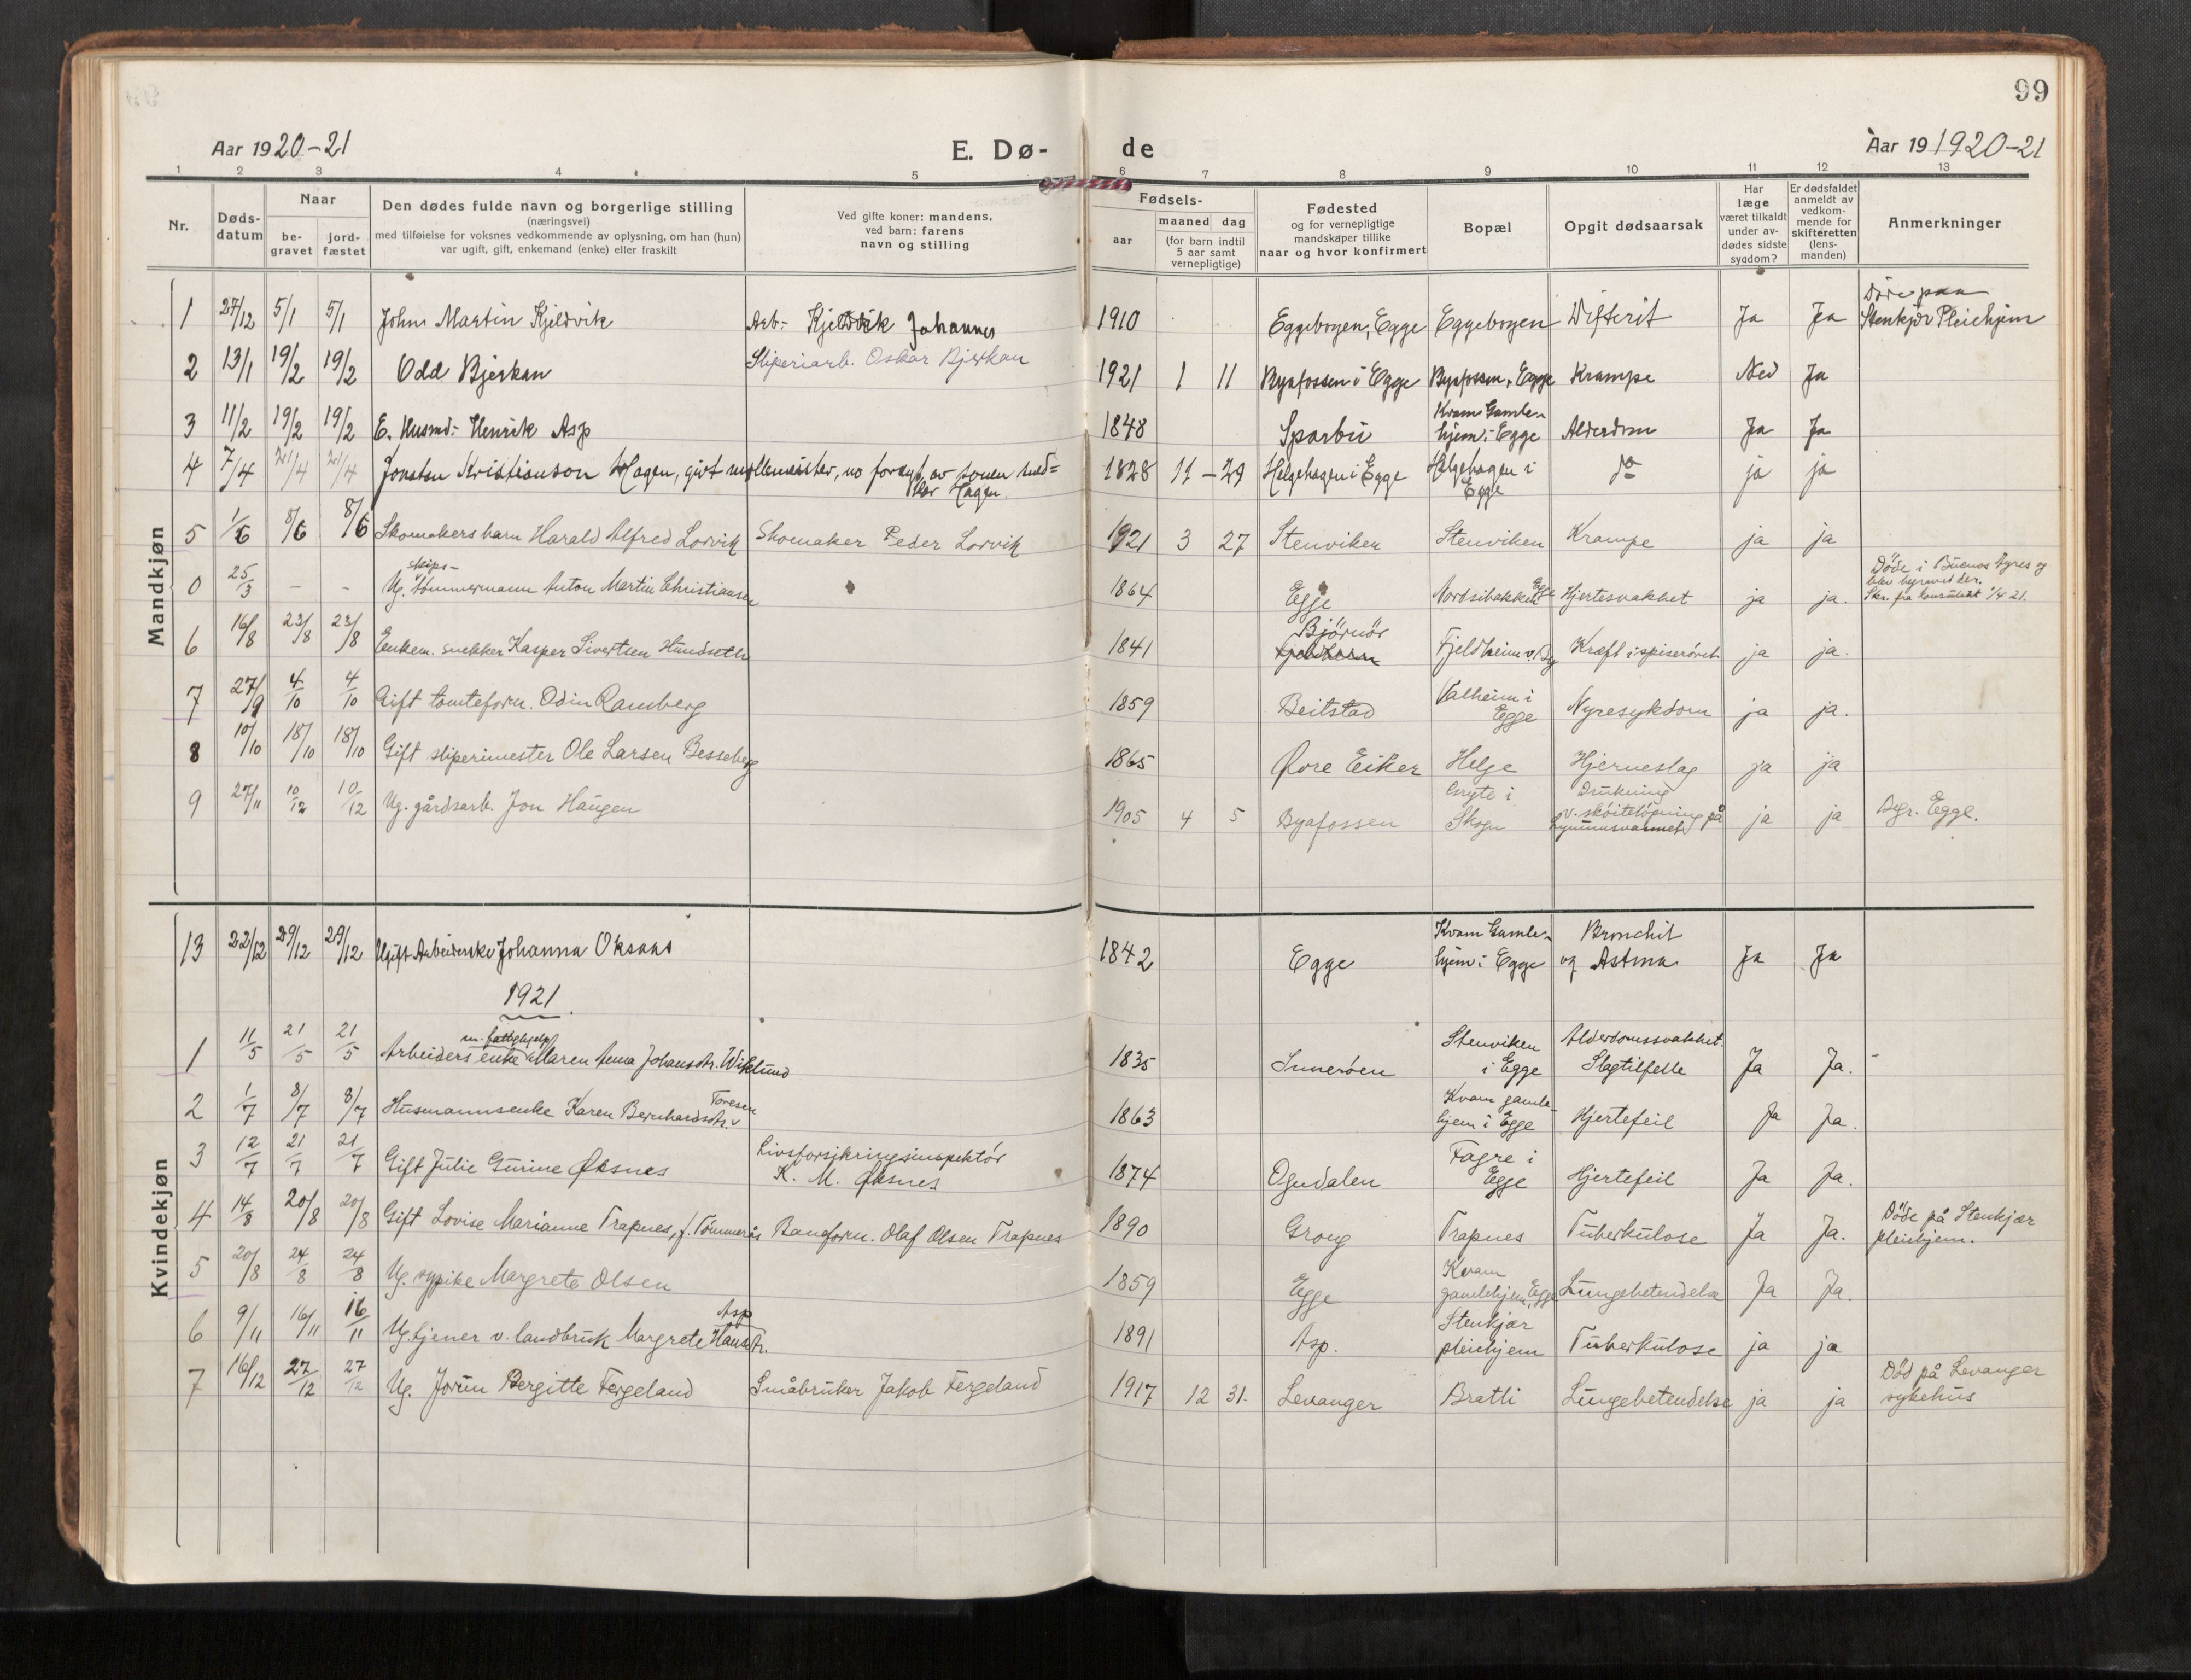 99
Aar 1920-21
E. Dø-
de
Aar 19 1920-21
1 2 3 4 5 6 7 8 9 10 11 12 13
Nr.
Døds-
datum
Naar
be-
gravet
jord-
fæstet
Den dødes fulde navn og borgerlige stilling
(næringsvei)
med tilføielse for voksnes vedkommende av oplysning, om han (hun)
var ugift, gift, enkemand (enke) eller fraskilt
Ved gifte koner: mandens,
ved barn: farens
navn og stilling
Fødsels-
aar
maaned dag
(for barn indtil
5 aar samt
vernepligtige)
Fødested
og for vernepligtige
mandskaper tillike
naar og hvor konfirmert
Bopæl
Opgit dødsaarsak
Har
læge
været tilkaldt
under av-
dødes sidste
sygdom?
Er dødsfaldet
anmeldt av
vedkom-
mende for
skifteretten
(lens-
manden)
Anmerkninger
Mandkjøn
1 27/12 5/1 5/1 John Martin Kjeldvik Arb:- Kjeldvik Johannes 1910 Eggebogen, Egge Eggebogen Difterit Ja Ja Døde paa Stenkjær Pleiehjem
2 13/1 19/2 19/2 Odd Bjerkan Sliperiarb. Oskar Bjerkan 1921 1 11 Byafossen i Egge Byafossen, Egge Krampe Nei Ja
3 11/2 19/2 19/2 E. Husmd:- Henrik Asp 1848 Sparbu Kvam Gamle-hjem i Egge Alderdom Ja Ja
4 7/4 21/4 21/4 Jonatan Kristianson Hagen, gift møllemester, no forsyt av sonen 1828 11 - 29 Helgehagen i Egge Helgehagen i Egge do ja ja
Hagen.
5 1/6 8/6 8/6 Skomakersbarn Harald Alfred Lorvik Skomaker Peder Lorvik 1921 3 27 Stenviken Stenviken Krampe ja ja
0 25/3 - - Ug. skips-tømmermann Anton Martin Christiansen 1864 Egge Nordsibakken Egge Hjertesvakhet ja ja. Døde i Buenos Ayres og blev begravet der. Skr. fra konsulatet 1/4 21.
6 16/8 23/8 23/8 Enkem. snekker Kasper Sivertsen Hundseth 1841 Bjørnør Fjeldheim v. By Kræft i spiserøret ja ja.
7 27/9 4/10 4/10 Gift tomteform. Odin Ramberg 1859 Beitstad Valheim i Egge Nyresykdom ja ja.
8 10/10 18/10 18/10 Gift sliperimester Ole Larsen Besseberg 1865 Øvre Eiker Helge Hjerneslag ja ja
9 27/11 10/12 10/12 Ug. gårdsarb. Jon Haugen 1905 4 5 Byafossen i Skogn Drukning v. skøiteløpning på ja ja Begr. Egge.
Kvindekjøn
13 22/12 29/12 29/12 Ugift Arbeiderske Johanna Oksaas 1842 Egge Kvam Gamle-hjem i Egge Bronchit og Astma Ja Ja
1921
1 11/5 21/5 21/5 Arbeidersenke m. fattighjelp Maren Anna Johansdtr. Wiklund 1835 Innerøen Stenviken i Egge Alderdomssvakhet. Slagtilfelle Ja Ja.
2 1/7 8/7 8/7 Husmannsenke Karen Bernhardsdtr. Toresen 1863 Kvam gamle-hjem i Egge Hjertefeil Ja Ja.
3 12/7 21/7 21/7 Gift Julie Gurine Øksnes Livsforsikringsinspektør K. M. Øksnes 1874 Ogndalen Fagre i Egge Hjertefeil Ja Ja.
4 14/8 20/8 20/8 Gift Lovise Marianne Trapnes, f. Tømmerås Baneform. Olaf Olsen Trapnes 1890 Grong Trapnes Tuberkulose Ja Ja. Døde på Stenkjær pleiehjem.
5 20/8 24/8 24/8 Ug. sypike Margrete Olsen 1859 Egge Kvam gamlehjem, Egge Lungebetendelse Ja Ja.
6 9/11 16/11 16/11 Ug. tjener v. landbruk Margrete Hansdtr. Asp 1891 Asp. Stenkjær pleiehjem Tuberkulose ja ja
7 16/12 27/12 27/12 Ug. Jorun Bergitte Fergeland Småbruker Jakob Fergeland 1917 12 31. Levanger Bratli Lungebetendelse ja ja Død på Levanger sykehus